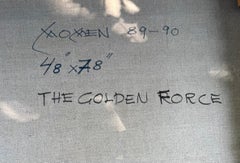 89-90
48" x 78"
THE GOLDEN FORCE